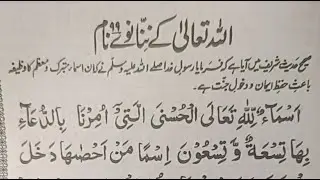 اللہ تعالیٰ کے ننانوے ۹۹ نام
صحیح حدیث شریف میں آیا ہے کہ فرمایا رسول خدا صلے اللہ علیہ وسلم نے کہ ان اسماء متبرک و معظم کا وظیفہ
باعث حفظِ ایمان و دخول جنت ہے۔
اَسْمَاءُ لِلّٰهِ تَعَالَى الْحُسْنَى الَّتِیْ اُمِرْنَا بِالدُّعَآءِ
بِهَا تِسْعَةٌ وَّ تِسْعُوْنَ اِسْمًا مَنْ اَحْصٰهَا دَخَلَ